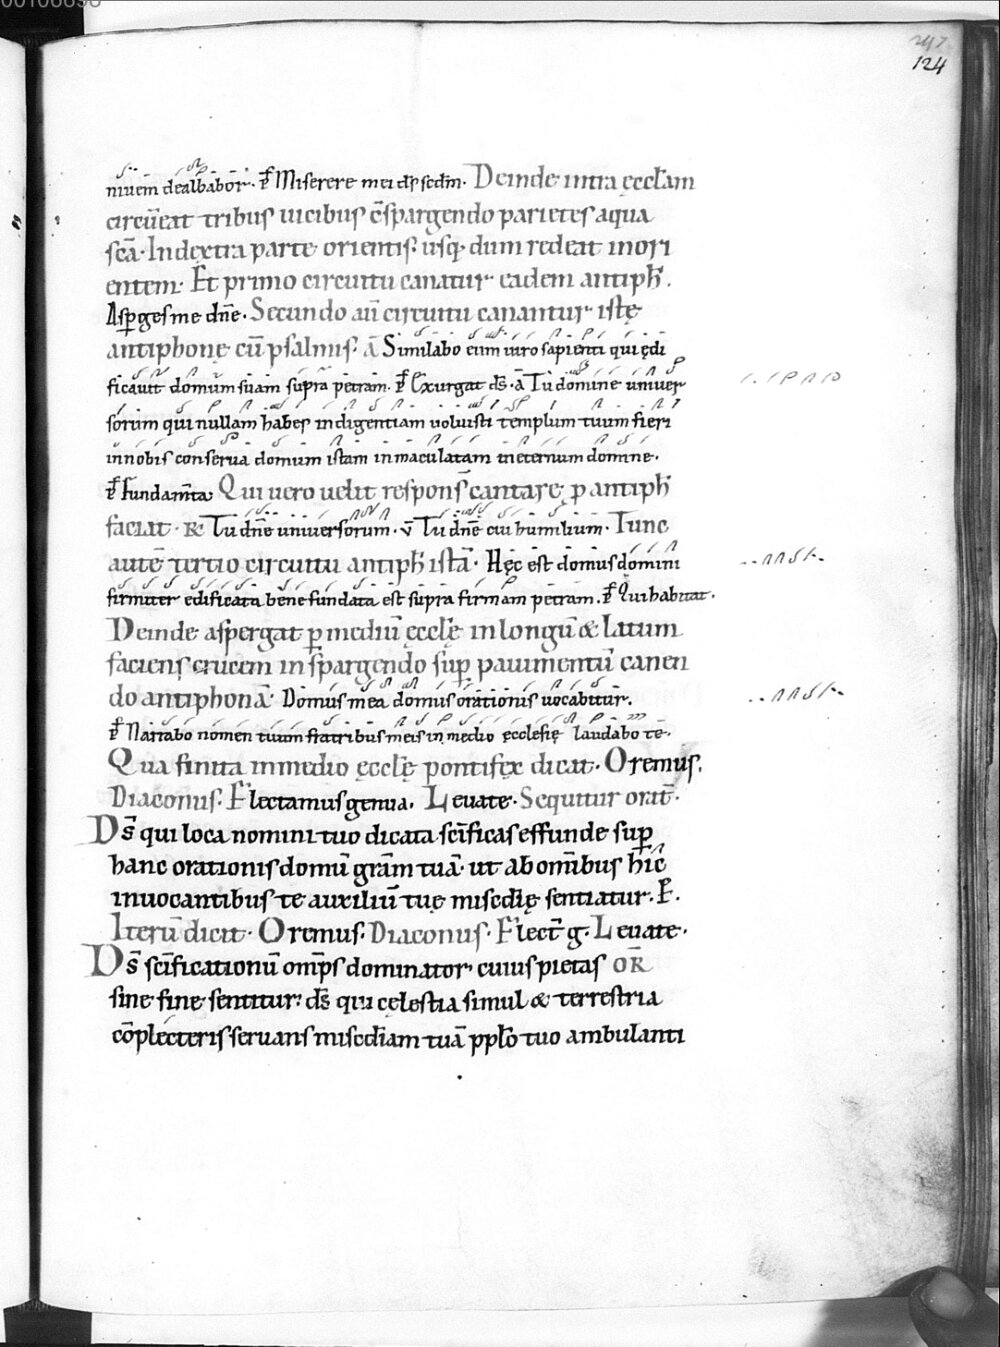 00106696
247
124
niuem dealbabor. ps̄ Miserere mei ds̄ scdm̄. Deinde intra ęccłam
circūeat tribus uicibus c̄spargendo parietes aqua
scā. In dextra parte orientis. usq; dum redeat in ori
entem. Et primo circuitu canatur eadem antiph̄.
Asp̱ges me dn̄e. Secundo aū circuitu canantur istę
antiphonę cū psalmis. ā Similabo eum uiro sapienti qui ędi
ficauit domum suam supra petram. ps̄ Exurgat ds̄. ā Tu domine uniuer
sorum qui nullam habes indigentiam uoluisti templum tuum fieri
in nobis conserua domum istam inmaculatam in eternum domine.
ps̄ Fundam̄ta Qui uero uelit respons̄ cantare p̱ antiph̄
faciat. R̄ Tu dn̄e uniuersorum. v̄ Tu dn̄e cui humilium. Tunc
autē tertio circuitu antiph̄ istā. Hęc est domus domini
firmiter edificata bene fundata est supra firmam petram. ps̄ Qui habitat.
Deinde aspergat p̱ mediū ęcclę in longū & latum
faciens crucem in spargendo sup̱ pauimentū canen
do antiphonā. Domus mea domus orationis uocabitur.
ps̄ Narrabo nomen tuum fratribus meis in medio ęcclesię laudabo te.
Qua finita in medio ęcclę pontifex dicat. Oremus.
Diaconus. Flectamus genua. Leuate. Sequitur orat̄.
Ds̄ qui loca nomini tuo dicata scīficas effunde sup̱
hanc orationis domū grām tuā. ut ab om̄ibus hic
inuocantibus te auxiliū tuę misedię sentiatur. P̱.
Iterū dicit. Oremus. Diaconus. Flect̄ g. Leuate.
Ds̄ scīficationū omp̄s dominator. cuius pietas OR̄
sine fine sentitur. ds̄ qui cęlestia simul & terrestria
cōplecteris seruans misediam tuā pplo tuo ambulanti